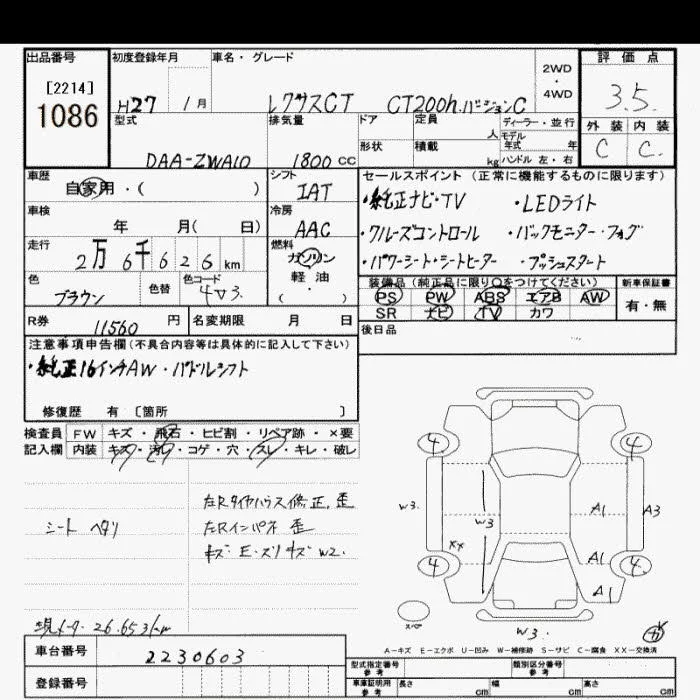 出品番号 初度登録年月 車名・グレード 2WD・4WD 評価点
[2214]
1086
H27 1月 レクサスCT CT200h.バージョンC 3.5.
型式 排気量 ドア 定員 人 ディーラー・並行 外装 内装
モデル年式 年
DAA-ZWA10 1800 cc 形状 積載 kg ハンドル 左・右 C C.
車歴 シフト セールスポイント (正常に機能するものに限ります)
自家用・( ) IAT ・純正ナビ・TV ・LEDライト
車検 冷房
年 月( 日) AAC ・クルーズコントロール ・バックモニター・フォグ
走行 燃料
2万6千626km ガソリン ・パワーシート・シートヒーター ・プッシュスタート
軽油
・( )
色 色替 色コード 装備品 (純正品に限り○をつけてください) 新車保証書
ブラウン 4V3. PS PW ABS エアB AW 有・無
SR ナビ TV カワ
R券 11560 円 名変期限 月 日 後日品
注意事項申告欄 (不具合内容等は具体的に記入して下さい)
・純正16インチAW・パドルシフト
修復歴 有 [箇所 ]
検査員 FW キズ・飛石・ヒビ割・リペア跡・×要
記入欄 内装 キズ・汚レ・コゲ・穴・スレ・キレ・破レ
左Rタイヤハウス修正、歪
シート ヘタリ 左Rインパネ 歪
キズ・E・スリキズ W2.
現メータ 26.653km
4 4
W3. W3 A1 A3
XX A1
4 4
A1
スペア
W3.
A-キズ E-エクボ U-凹み W-補修跡 S-サビ C-腐食 XX-交換済
車台番号 2230603
登録番号
型式指定番号 参考 類別区分番号 参考
車庫証明用 参考 長さ cm 幅 cm 高さ cm